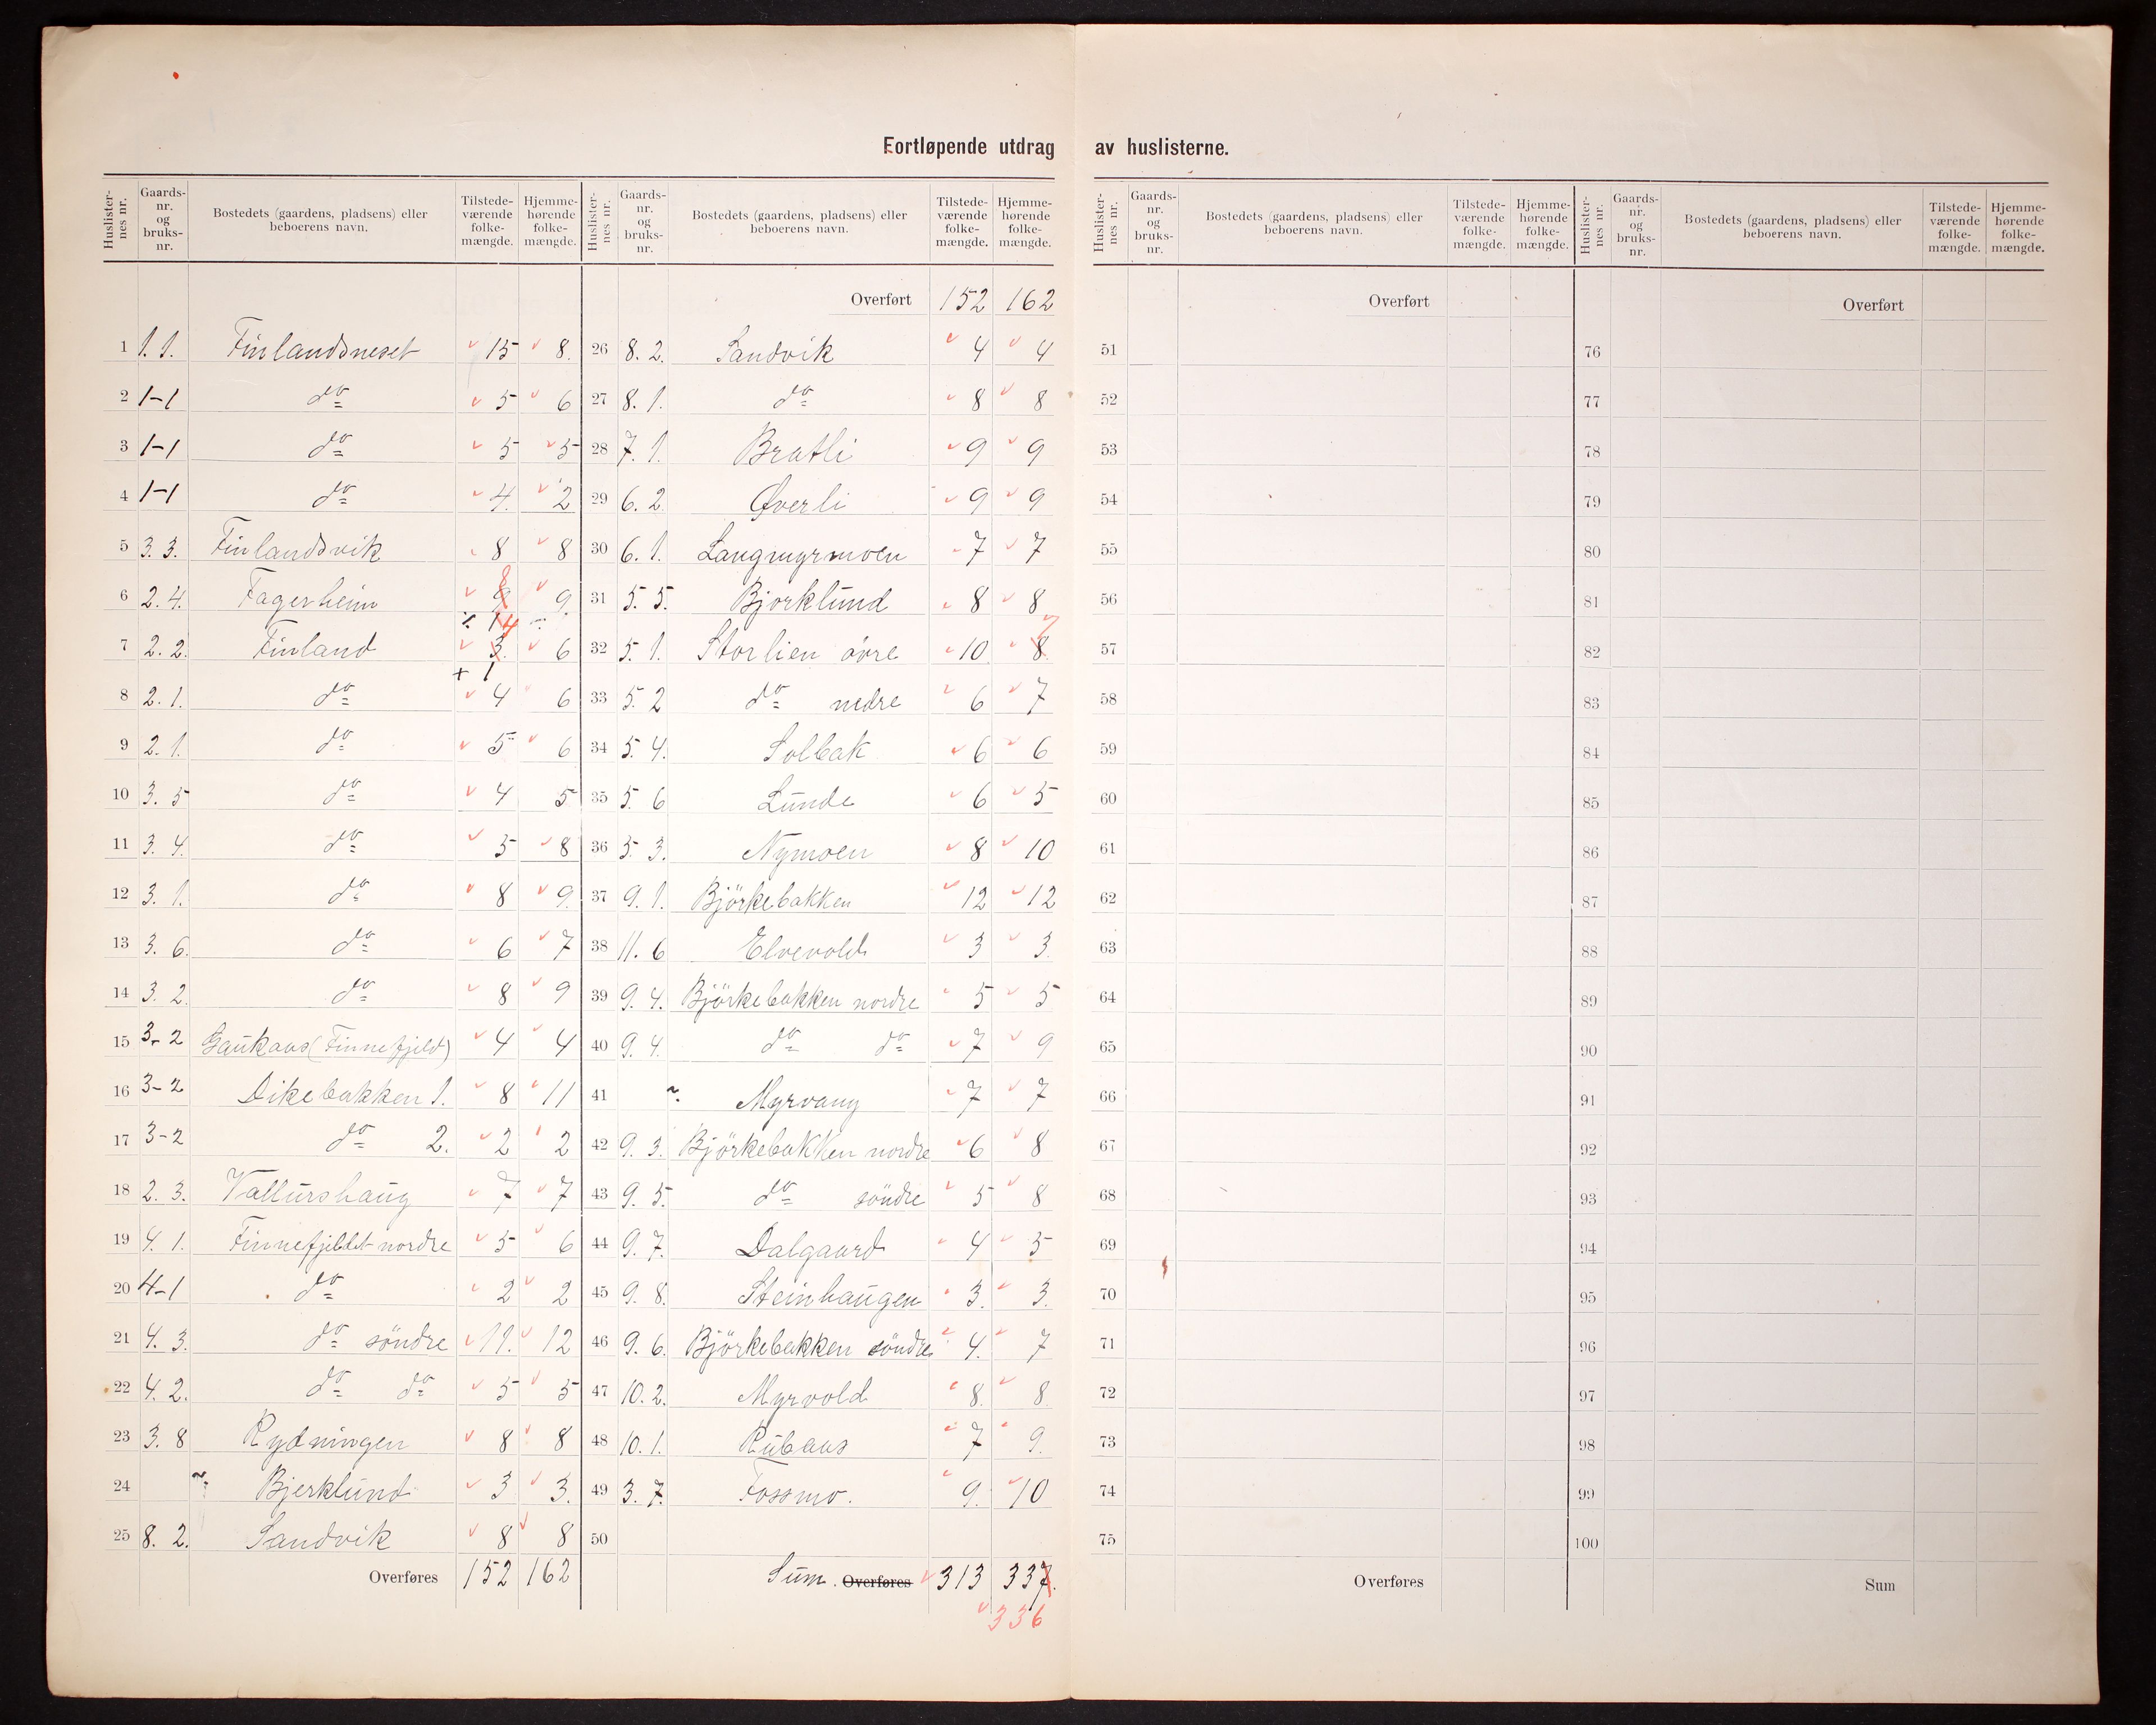 Fortløpende utdrag av huslisterne.
Huslisternes nr. Gaardsnr. og bruksnr. Bostedets (gaardens, pladsens) eller beboerens navn. Tilstedeværende folkemængde. Hjemmehørende folkemængde. Huslisternes nr. Gaardsnr. og bruksnr. Bostedets (gaardens, pladsens) eller beboerens navn. Tilstedeværende folkemængde. Hjemmehørende folkemængde.
1 1. 1. Finlandsneset 15 8.
2 1-1 do 5 6
3 1-1 do 5 5
4 1-1 do 4. 2
5 3. 3. Finlandsvik 8 8
6 2. 4. Fagerheim 9 8 9.
÷ 1
7 2. 2. Finland 3. 4 6
+ 1
8 2. 1. do 4 6
9 2. 1. do 5 6
10 3. 5 do 4 5
11 3. 4. do 5 8
12 3. 1. do 8 9.
13 3. 6. do 6 7
14 3. 2. do 8 9
15 3-2 Gaukaas (Finnefjeld) 4 4
16 3-2 Dikebakken 1. 8 11
17 3-2 do 2. 2 2
18 2. 3. Vallurshaug 7 7
19 4. 1. Finnefjeldet nordre 5 6
20 4-1 do 2 2
21 4. 3. do söndre 11. 12
22 4. 2. do do 5 5
23 3. 8 Rydningen 8 8
24 Bjerklund 3 3.
25 8. 2. Sandvik 8 8
Overføres 152 162
Overført 152 162
26 8. 2. Sandvik 4 4
27 8. 1. do 8 8
28 7. 1. Bratli 9 9
29 6. 2. Øverli 9 9
30 6. 1. Langmyrmoen 7 7
31 5. 5. Bjorklund 8 8
32 5. 1. Storlien övre 10 8 7
33 5. 2 do nedre 6 7
34 5. 4. Solbak 6 6
35 5. 6 Lunde 6 5
36 5. 3. Nymoen 8 10
37 9. 1. Björkebakken 12 12
38 11. 6 Elvevold 3 3.
39 9. 4. Björkebakken nordre 5 5
40 9. 4. do do 7 9
41 Myrvang 7 7
42 9. 3. Björkebakken nordre 6 8
43 9. 5. do söndre 5 8
44 9. 7. Dalgaard 4 5
45 9. 8. Steinhaugen 3. 3.
46 9. 6. Björkebakken söndre 4. 7
47 10. 2. Myrvold 8. 8.
48 10. 1. Rubaas 7 9.
49 3. 7. Fossmo. 9. 10
50
Sum. Overføres 313 337.
336
Huslisternes nr. Gaardsnr. og bruksnr. Bostedets (gaardens, pladsens) eller beboerens navn. Tilstedeværende folkemængde. Hjemmehørende folkemængde. Huslisternes nr. Gaardsnr. og bruksnr. Bostedets (gaardens, pladsens) eller beboerens navn. Tilstedeværende folkemængde. Hjemmehørende folkemængde.
Overført
51
52
53
54
55
56
57
58
59
60
61
62
63
64
65
66
67
68
69
70
71
72
73
74
75
Overføres
Overført
76
77
78
79
80
81
82
83
84
85
86
87
88
89
90
91
92
93
94
95
96
97
98
99
100
Sum